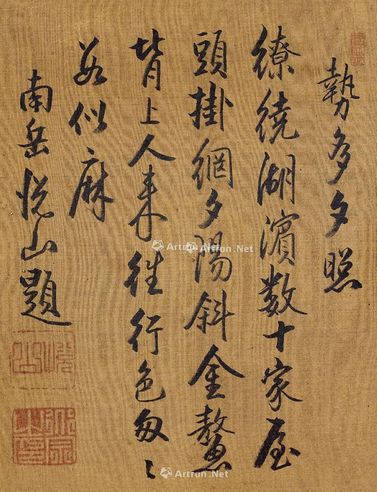 勢多夕照
繚繞湖濱數十家屋
頭掛網夕陽斜金鰲
背上人来往行色匆〻
似麻
南岳悅山題
Artron.Net
Artron.Net